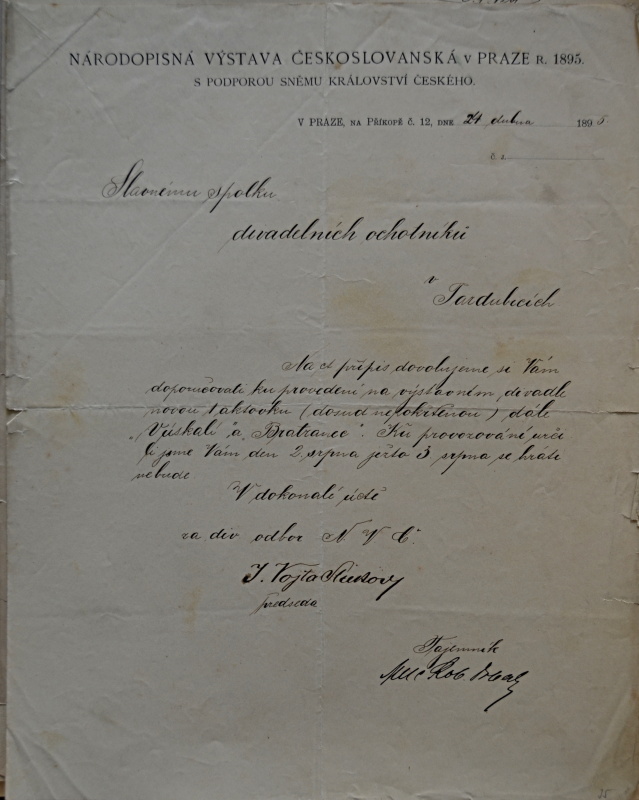 NÁRODOPISNÁ VÝSTAVA ČESKOSLOVANSKÁ V PRAZE R. 1895.
S PODPOROU SNĚMU KRÁLOVSTVÍ ČESKÉHO.
V PRAZE, NA PŘÍKOPĚ Č. 12, DNE 24 dubna 1895.
Č. J.
Slavnému spolku
divadelních ochotníků
v Pardubicích
Na ct přípis dovolujeme si Vám
doporučovati ku provedení na výstavním divadle
novou 1 aktovku (dosud nepokřtěnou) dále
„V úskalí" a „Bratranec". Ku provozování urči
li jsme Vám den 2 srpna ježto 3 srpna se hráti
nebude
V dokonalé úctě
za div odbor N V Č.
J. Vojta
předseda
Tajemník